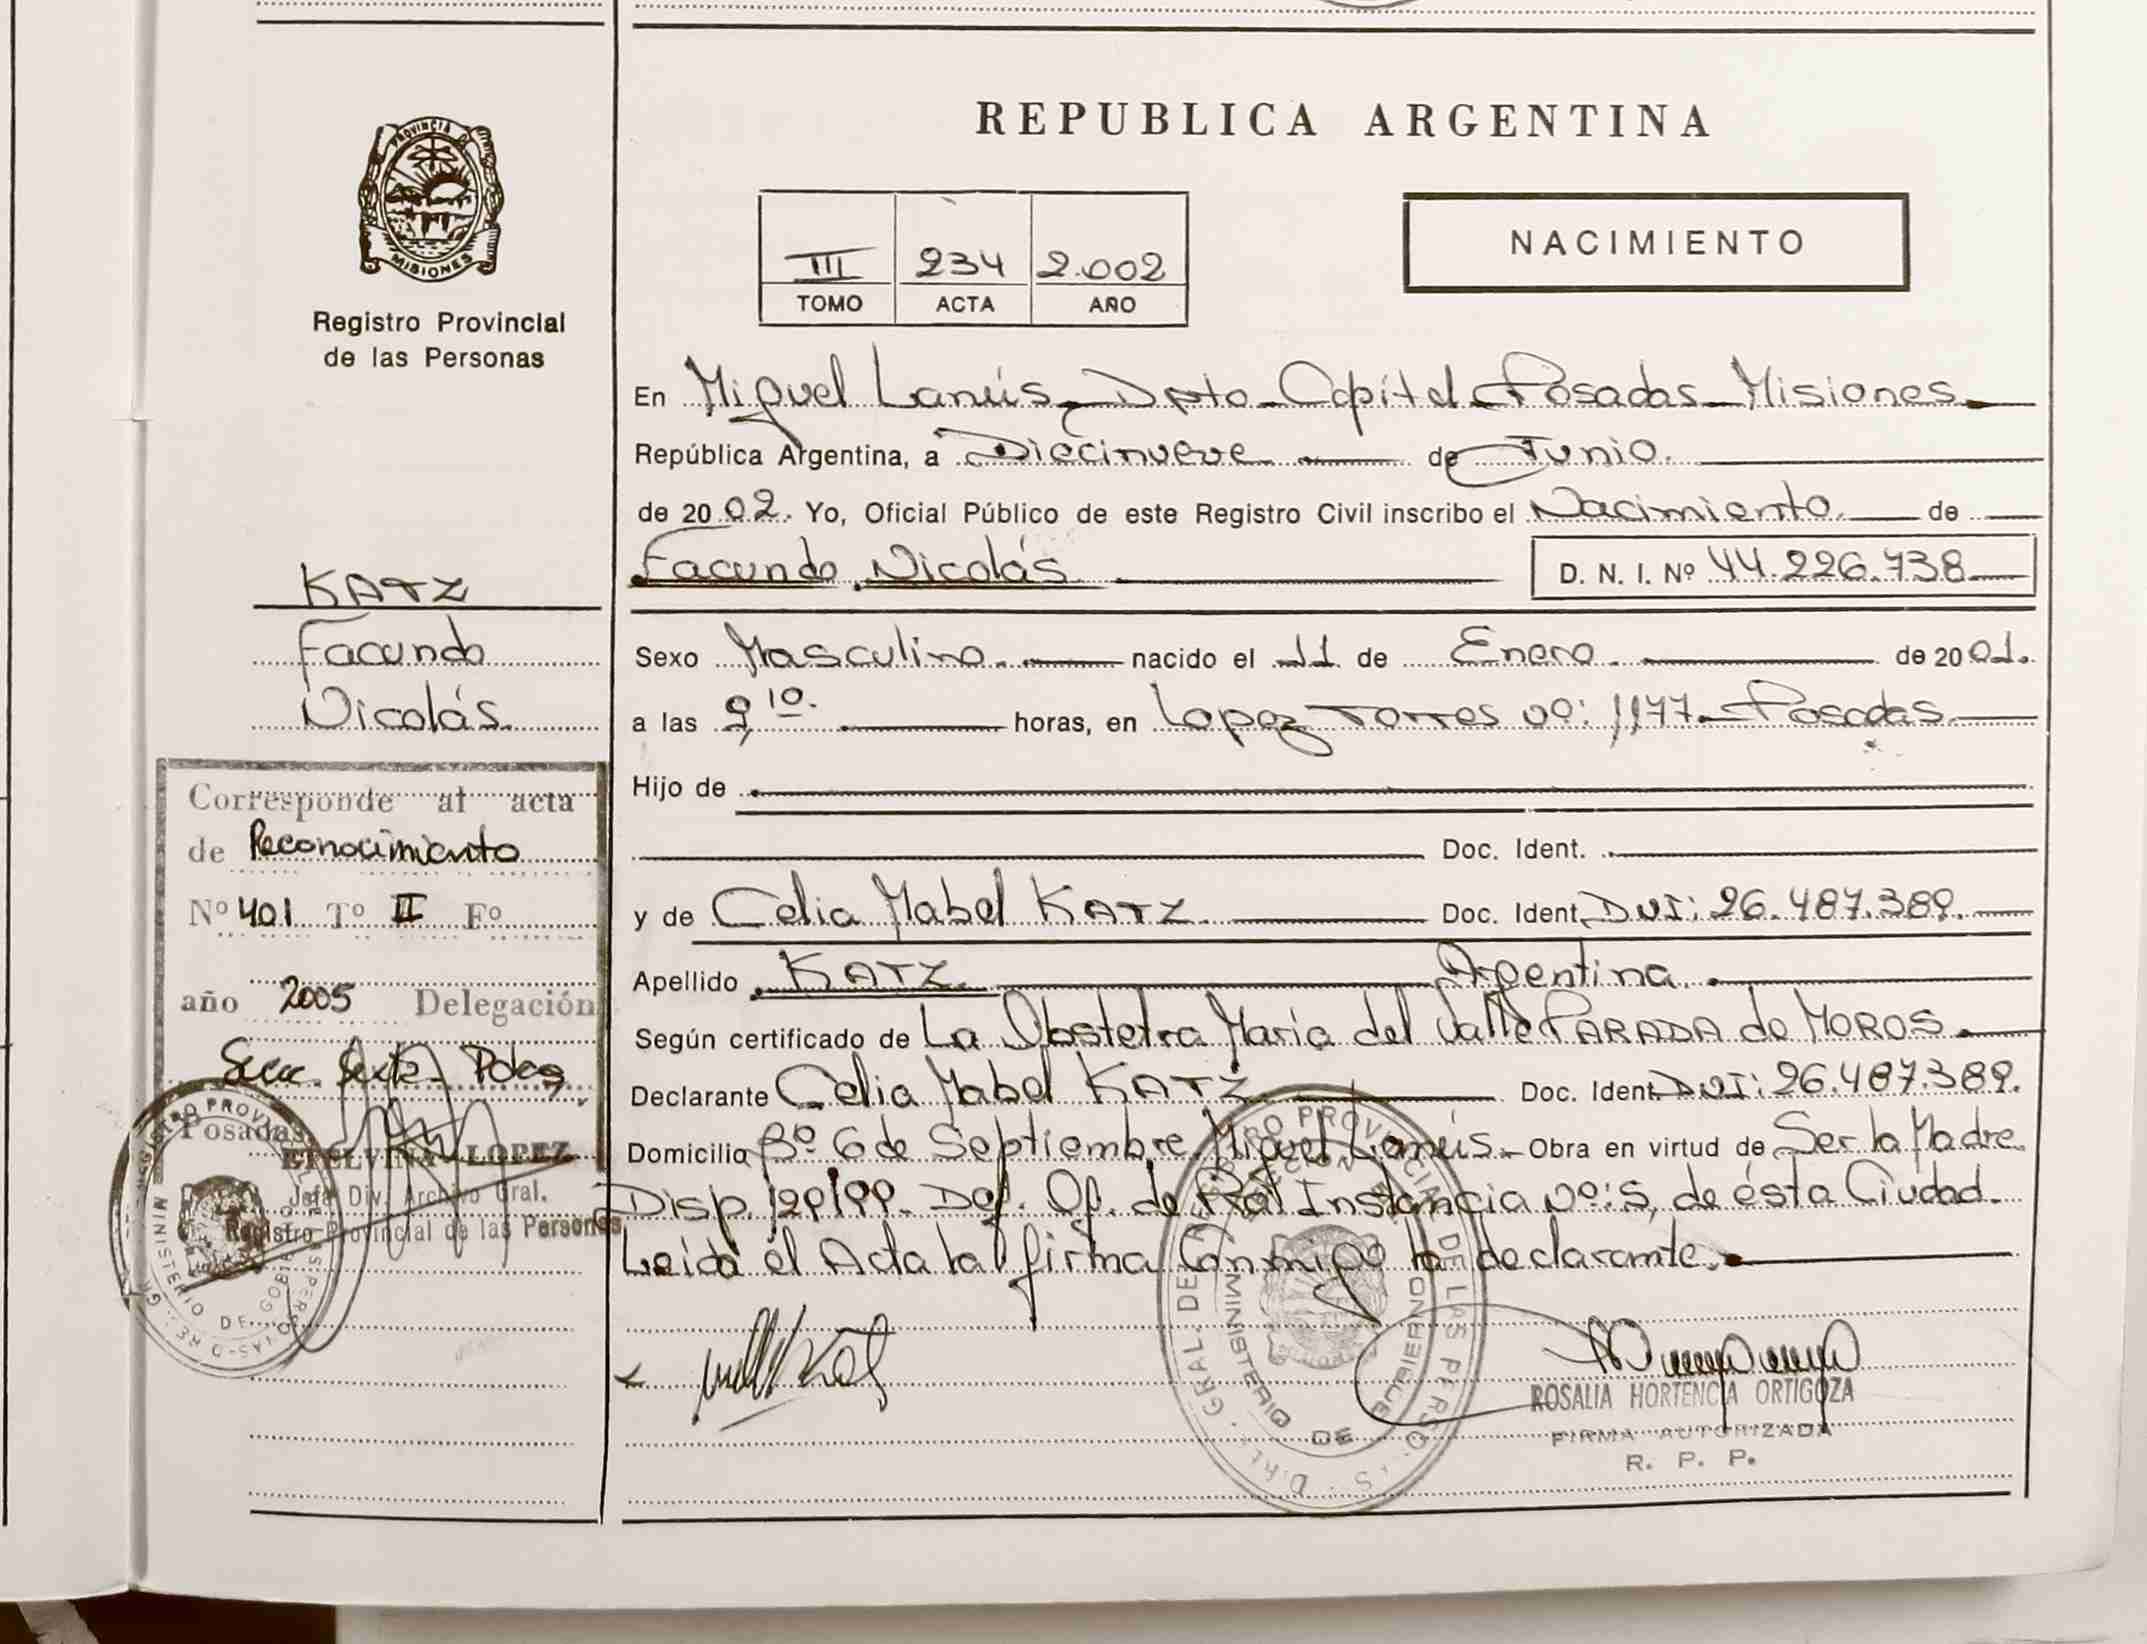 PROVINCIA DE
MISIONES
Registro Provincial
de las Personas
KATZ
Facundo
Nicolás
Corresponde al acta
de Reconocimiento
Nº 401 Tº II Fº
año 2005 Delegación
Secc. Sexta Pdas
Posadas
ETELVINA LOPEZ
Jefa Div. Archivo Gral.
Registro Provincial de las Personas
REPUBLICA ARGENTINA
III 234 2.002
TOMO ACTA AÑO
NACIMIENTO
En Miguel Lanús - Dpto - Capital - Posadas - Misiones
República Argentina, a Diecinueve de Junio.
de 2002. Yo, Oficial Público de este Registro Civil inscribo el Nacimiento de
Facundo Nicolás D. N. I. Nº 44.226.738
Sexo Masculino. nacido el 11 de Enero. de 2001.
a las 9,10. horas, en Lopez Torres Nº: 1,177 - Posadas
Hijo de
Doc. Ident.
y de Celia Mabel KATZ. Doc. Ident. DNI: 26.487.389.
Apellido KATZ. Argentina.
Según certificado de La Obstetra Maria del Valle PARADA de MOROS.
Declarante Celia Mabel KATZ. Doc. Ident. DNI: 26.487.389.
Domicilio Bº 6 de Septiembre. Miguel Lanús. Obra en virtud de Ser la Madre.
Disp. 120/99. Def. Of. de Instancia Nº: 5, de ésta Ciudad.
Leida el Acta la firma Conmigo la declarante.
ROSALIA HORTENCIA ORTIGOZA
FIRMA AUTORIZADA
R. P. P.